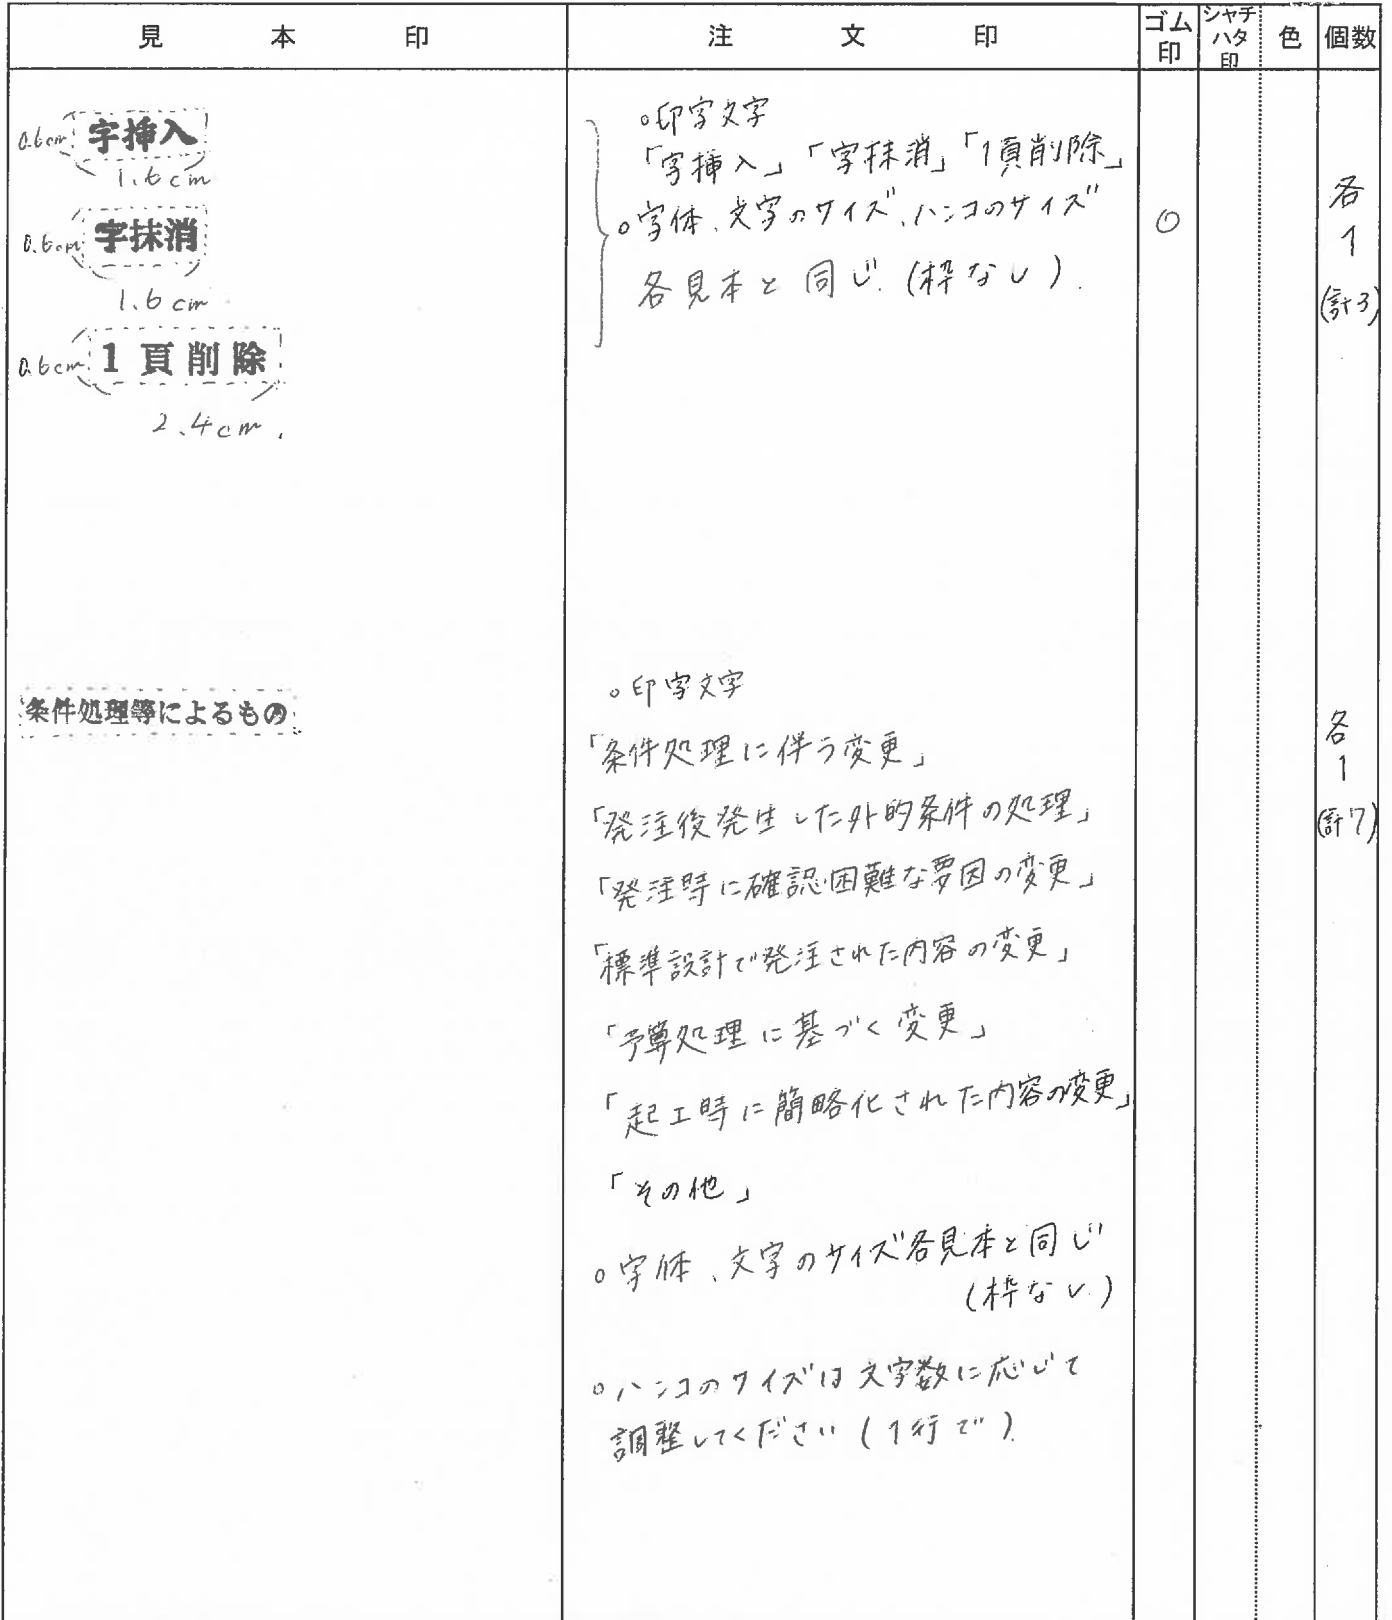 見本印 注文印 ゴム印 シャチハタ印 色 個数
0.6cm 字挿入
1.6cm
0.6cm 字抹消
1.6cm
0.6cm 1頁削除
2.4cm.
○印字文字
「字挿入」「字抹消」「1頁削除」
○字体、文字のサイズ、ハンコのサイズ
各見本と同じ.(枠なし).
○
各
1
(計3)
条件処理等によるもの
○印字文字
「条件処理に伴う変更」
「発注後発生した外的条件の処理」
「発注時に確認困難な要因の変更」
「標準設計で発注された内容の変更」
「予算処理に基づく変更」
「起工時に簡略化された内容の変更」
「その他」
○字体、文字のサイズ各見本と同じ
(枠なし)
○ハンコのサイズは文字数に応じて
調整してください(1行で)
各
1
(計7)